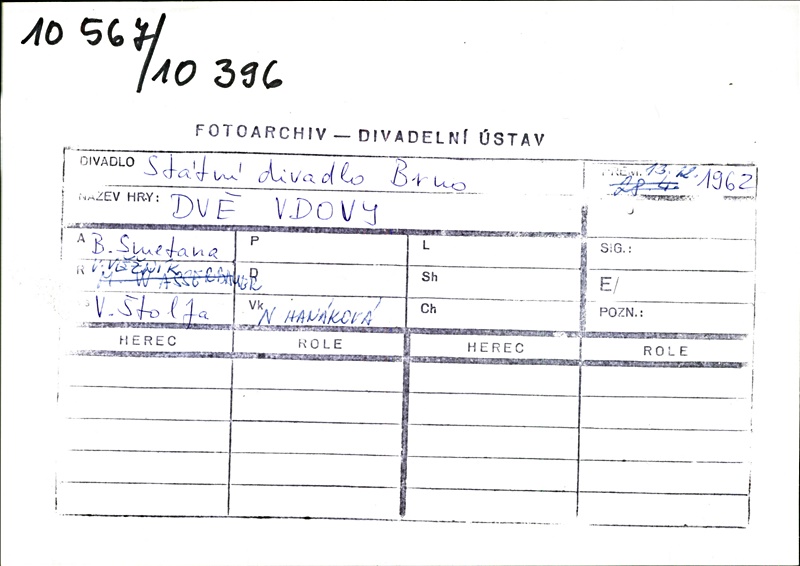 10 567/
/10 396
FOTOARCHIV — DIVADELNÍ ÚSTAV
DIVADLO Státní divadlo Brno
PREM. 13. 1962
NÁZEV HRY: DVĚ VDOVY
A B. Smetana P L SIG.:
R V. VĚŽNÍK M. WASSERBAUER D Sh E/
V. Štolfa Vk N HANÁKOVÁ Ch POZN.:
HEREC ROLE HEREC ROLE